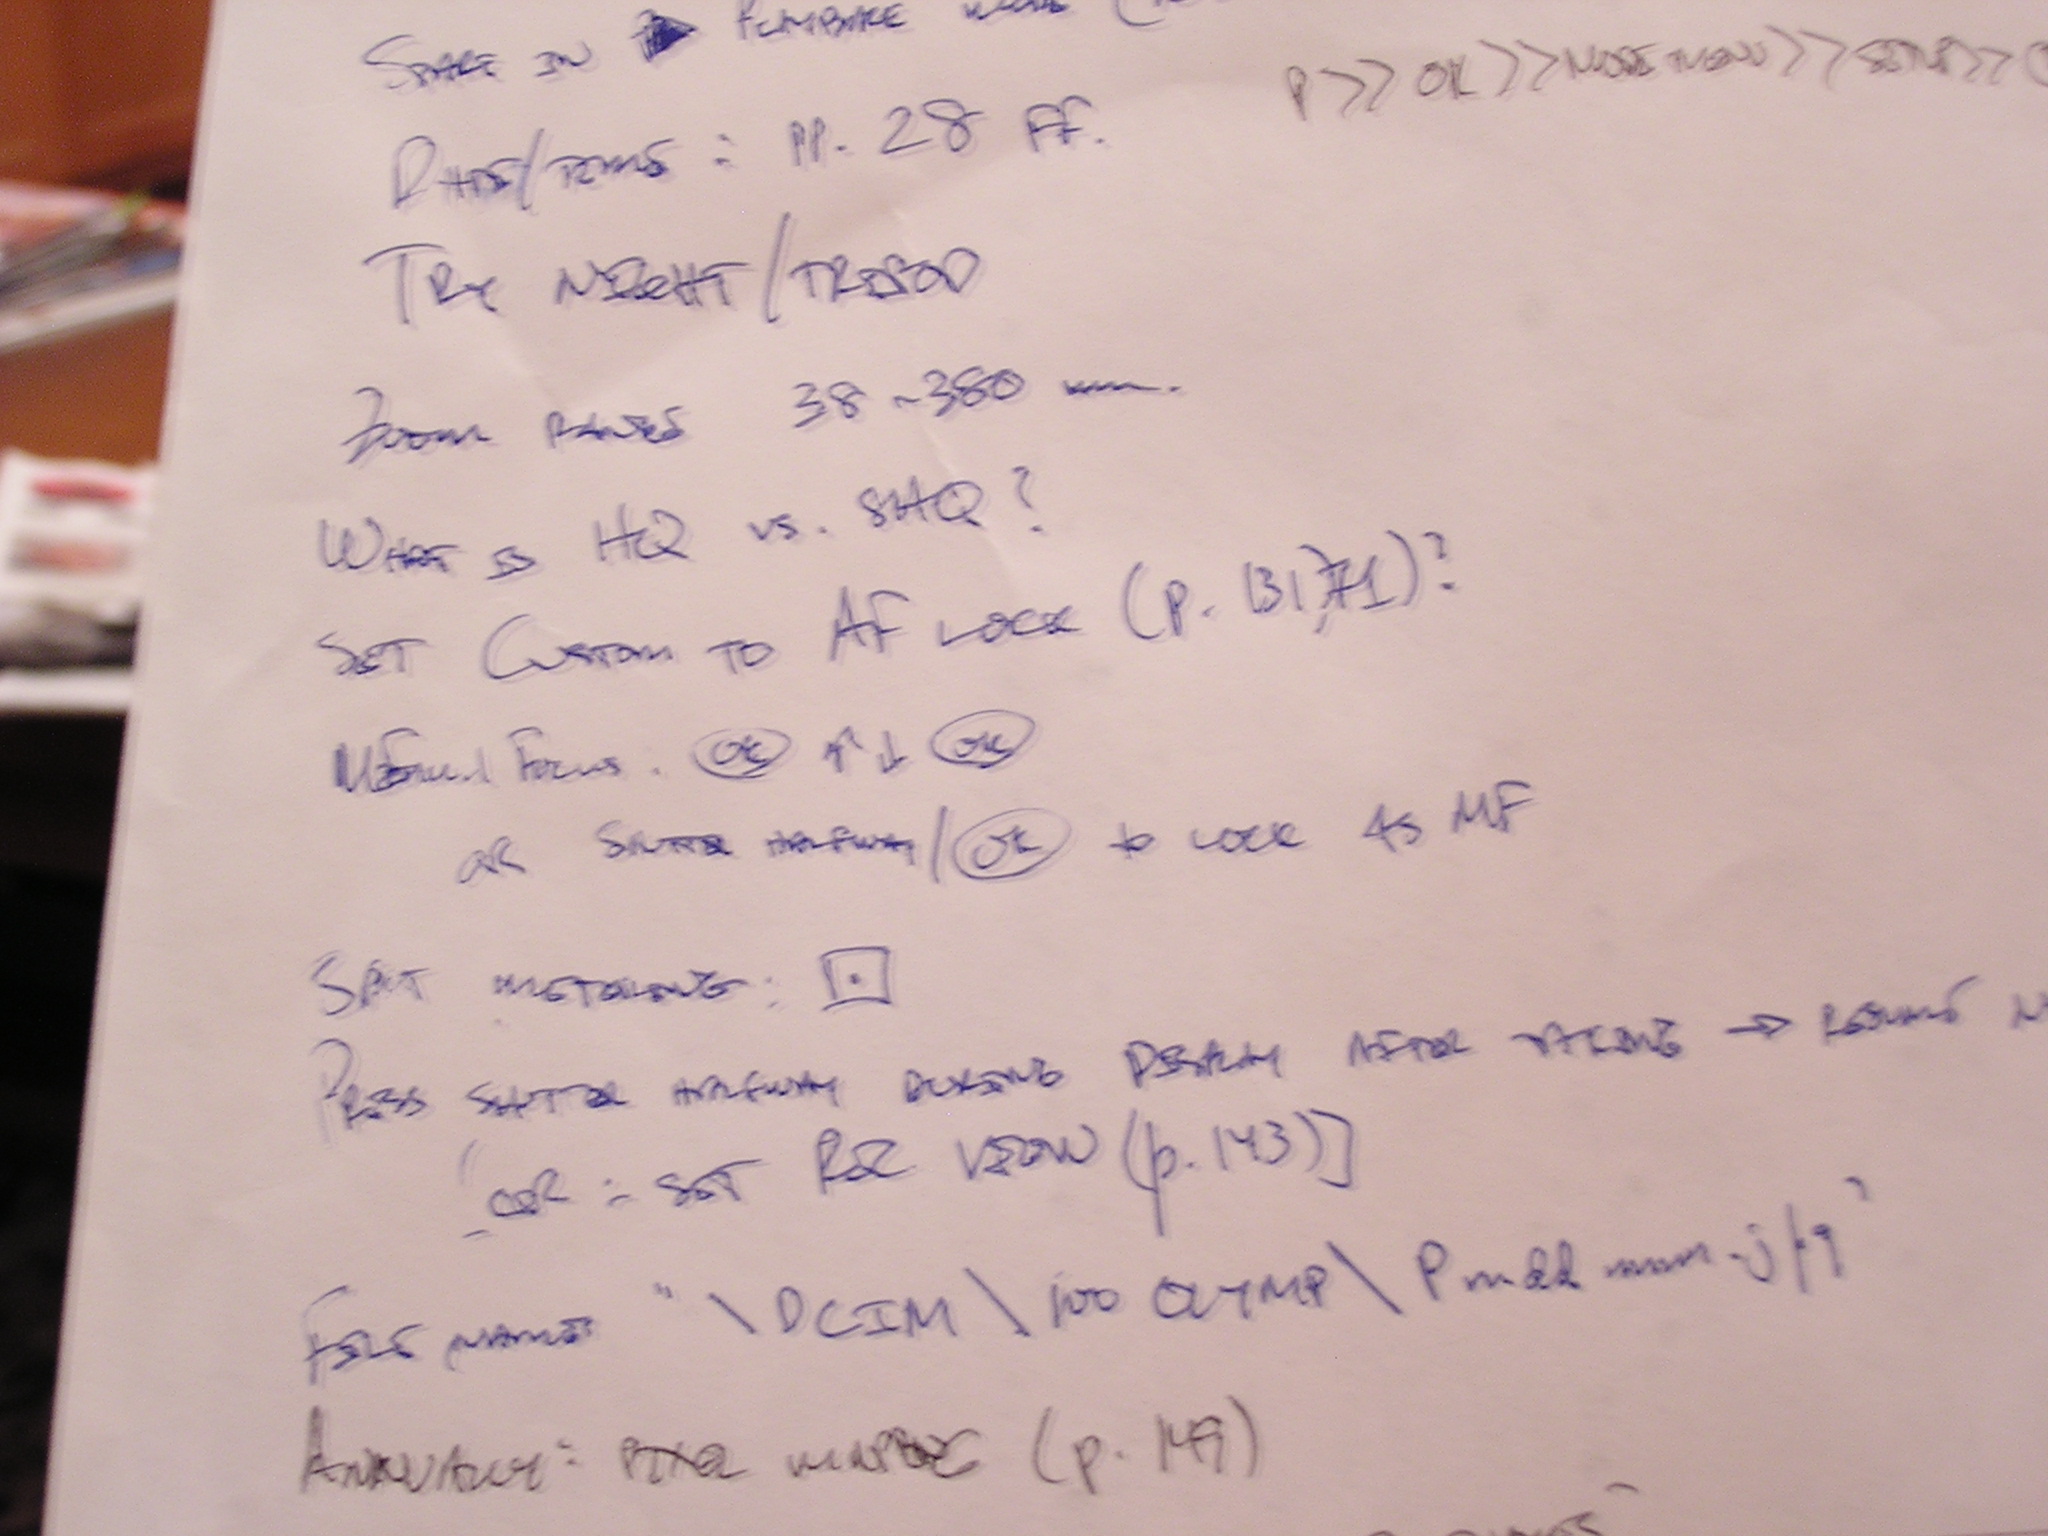 START IN ▶ 
P >> OK >> MODE MENU >> SETUP >>
DATES/TIMES : pp. 28 FF.
TRY NIGHT/TRIPOD
ZOOM RANGES 38~380 mm.
WHAT IS HQ vs. SHQ?
SET CUSTOM TO AF LOCK (p. 131, 71)?
MANUAL FOCUS: OK ↑↓ OK
OR SHUTTER HALFWAY/OK to LOCK AS MF
SPOT METERING: [·]
PRESS SHUTTER HALFWAY DURING DISPLAY AFTER TAKING → RESUMES
[OR: SET REC VIEW (p. 143)]
FILE NAMES "\DCIM\100OLYMP\Pmdd nnnn.jpg"
ANNUALLY: PIXEL MAPPING (p. 149)